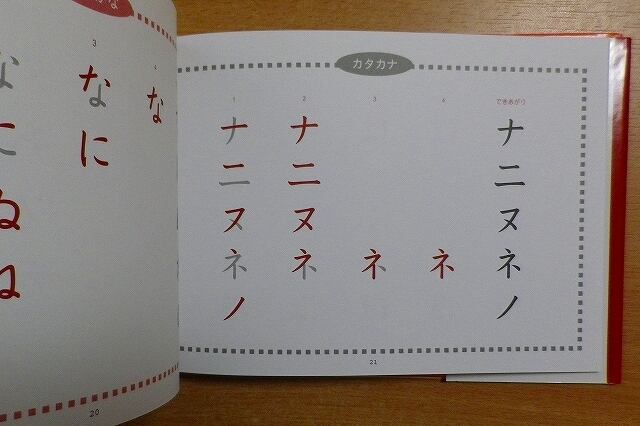 な
3
4
な
な
に
20
カタカナ
1
2
3
4
できあがり
ナ ナ ナ
ニ ニ ニ
ヌ ヌ ヌ
ネ ネ ネ ネ ネ
ノ ノ
21